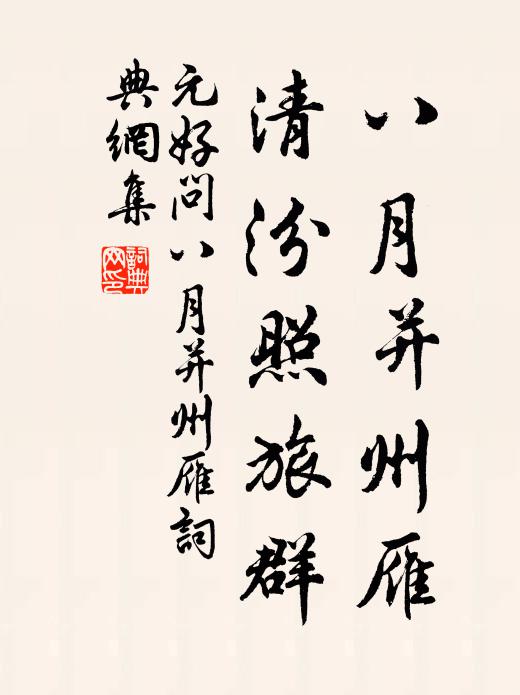 八月并州雁
清汾照旅群
元好问八月并州雁詞
典網集
詞典网印